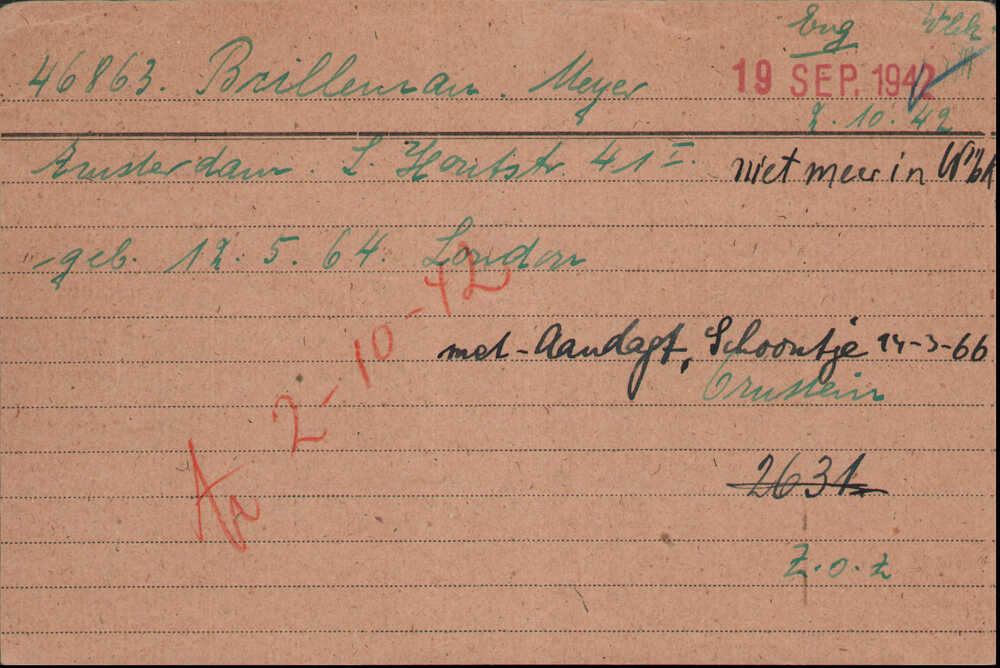 Eng
46863. Brilleman. Meyer
19 SEP. 1942
2.10.42
Amsterdam. L. Houtstr. 41 I.
niet meer in Wbk
geb. 12.5.64. London
met - Aandagt, Schoontje 14-3-66
Ornstein
Aa 2-10-42
2631
Z.o.z